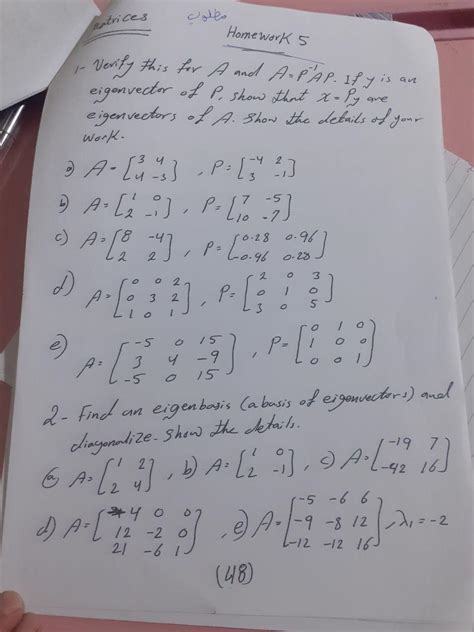 Matrices مطلوب
Homework 5
1- Verify this for A and A=P⁻¹AP. If y is an
eigenvector of P, show that x=Py are
eigenvectors of A. Show the details of your
work.
a) A=[3 4; 4 -3], P=[-4 2; 3 -1]
b) A=[1 0; 2 -1], P=[7 -5; 10 -7]
c) A=[8 -4; 2 2], P=[0.28 0.96; -0.96 0.28]
d) A=[0 0 2; 0 3 2; 1 0 1], P=[2 0 3; 0 1 0; 3 0 5]
e) A=[-5 0 15; 3 4 -9; -5 0 15], P=[0 1 0; 1 0 0; 0 0 1]
2- Find an eigenbasis (a basis of eigenvectors) and
diagonalize. Show the details.
a) A=[1 2; 2 4], b) A=[1 0; 2 -1], c) A=[-19 7; -42 16]
d) A=[4 0 0; 12 -2 0; 21 -6 1], e) A=[-5 -6 6; -9 -8 12; -12 -12 16], λ₁=-2
(48)